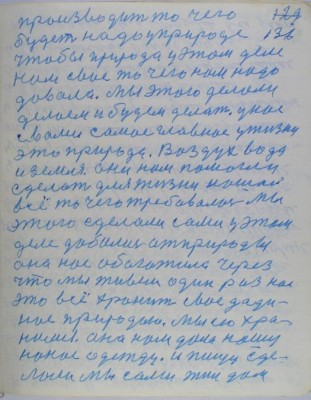 производит то чего 129
будет надо у природе 136
чтобы природа у этом деле
нам свое то чего нам надо
довала. Мы этого делали
делаем и будем делат. у нас
с вами самое главное у жизни
это природа. Воздух вода
и земля. они нам помогли
сделат для жизни нашей
всё то чего требовалос мы
этого сделали сами у этом
деле добалис от природы
она нас обогатила через
что мы живем один раз нас
это всё хранит свое дади-
ное природою. Мы ею хра-
нимс. она нам дала нашу
одежду. и пищу сде-
лали мы сами жил дом